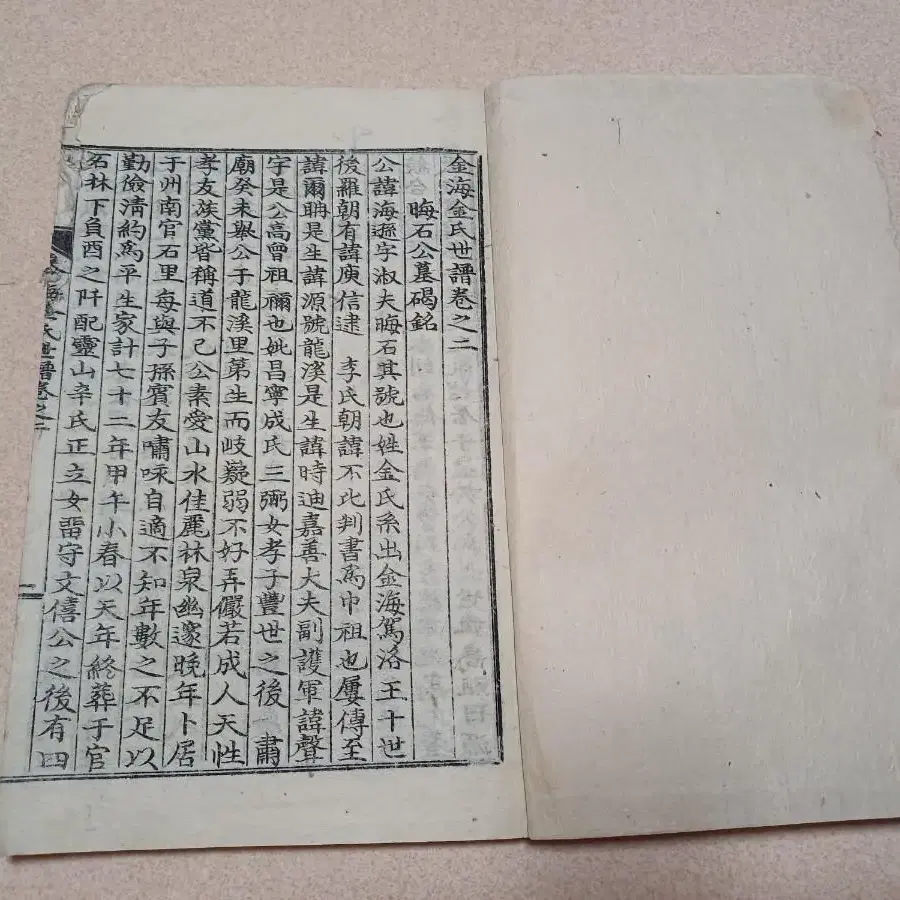 金海金氏世譜卷之二
晦石公墓碣銘
公諱海遜字淑夫晦石其號也姓金氏系出金海駕洛王十世
後羅朝有諱庾信逮 李氏朝諱不比判書爲中祖也屢傳至
諱爾聃是生諱源號龍溪是生諱時迪嘉善大夫副護軍諱聲
宇是公高曾祖禰也妣昌寧成氏三弼女孝子豐世之後 肅
廟癸未擧公于龍溪里第生而岐嶷弱不好弄儼若成人天性
孝友族黨皆稱道不已公素愛山水佳麗林泉幽邃晚年卜居
于州南官石里每與子孫賓友嘯咏自適不知年數之不足以
勤儉淸約爲平生家計七十二年甲午小春以天年終葬于官
石林下負酉之阡配靈山辛氏正立女留守文僖公之後有四
金海金氏世譜卷之二
一